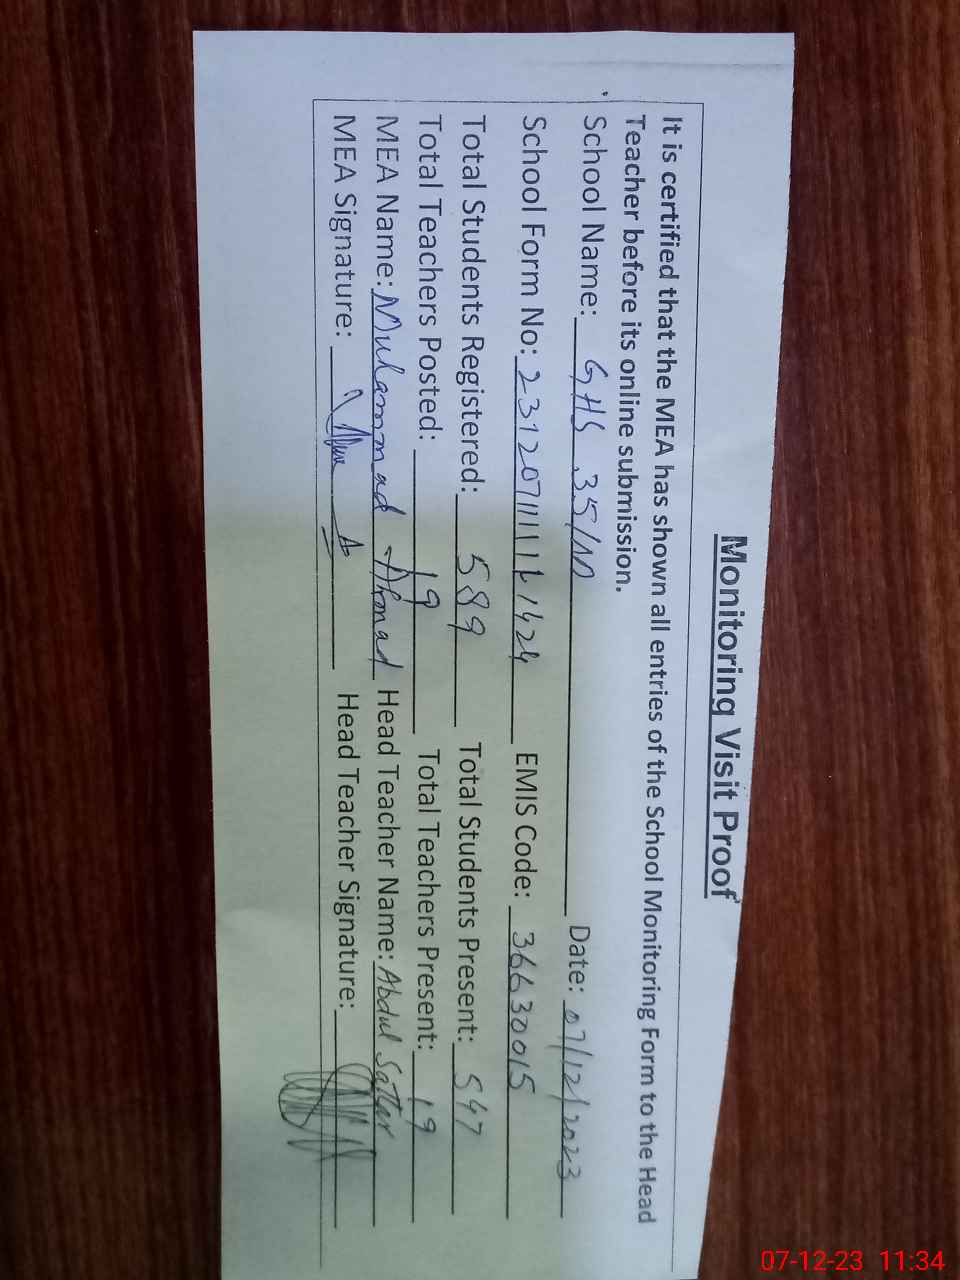 Monitoring Visit Proof
It is certified that the MEA has shown all entries of the School Monitoring Form to the Head
Teacher before its online submission.
School Name: GHS 35/M Date: 07/12/2023
School Form No: EMIS Code: 36630015
Total Students Registered: 589 Total Students Present: 547
Total Teachers Posted: 19 Total Teachers Present: 19
MEA Name: Muhammad Ahmad Head Teacher Name: Abdul Sattar
MEA Signature: Head Teacher Signature:
07-12-23 11:34